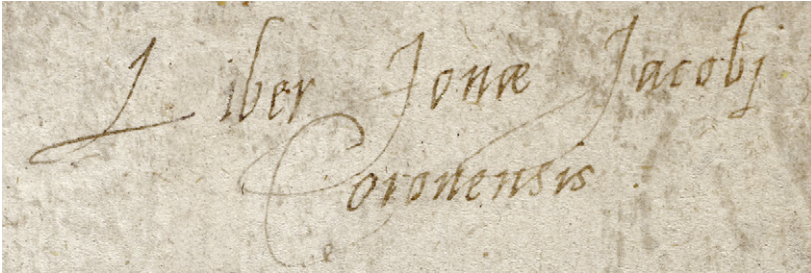 Liber Jonæ Jacobj
Coronensis